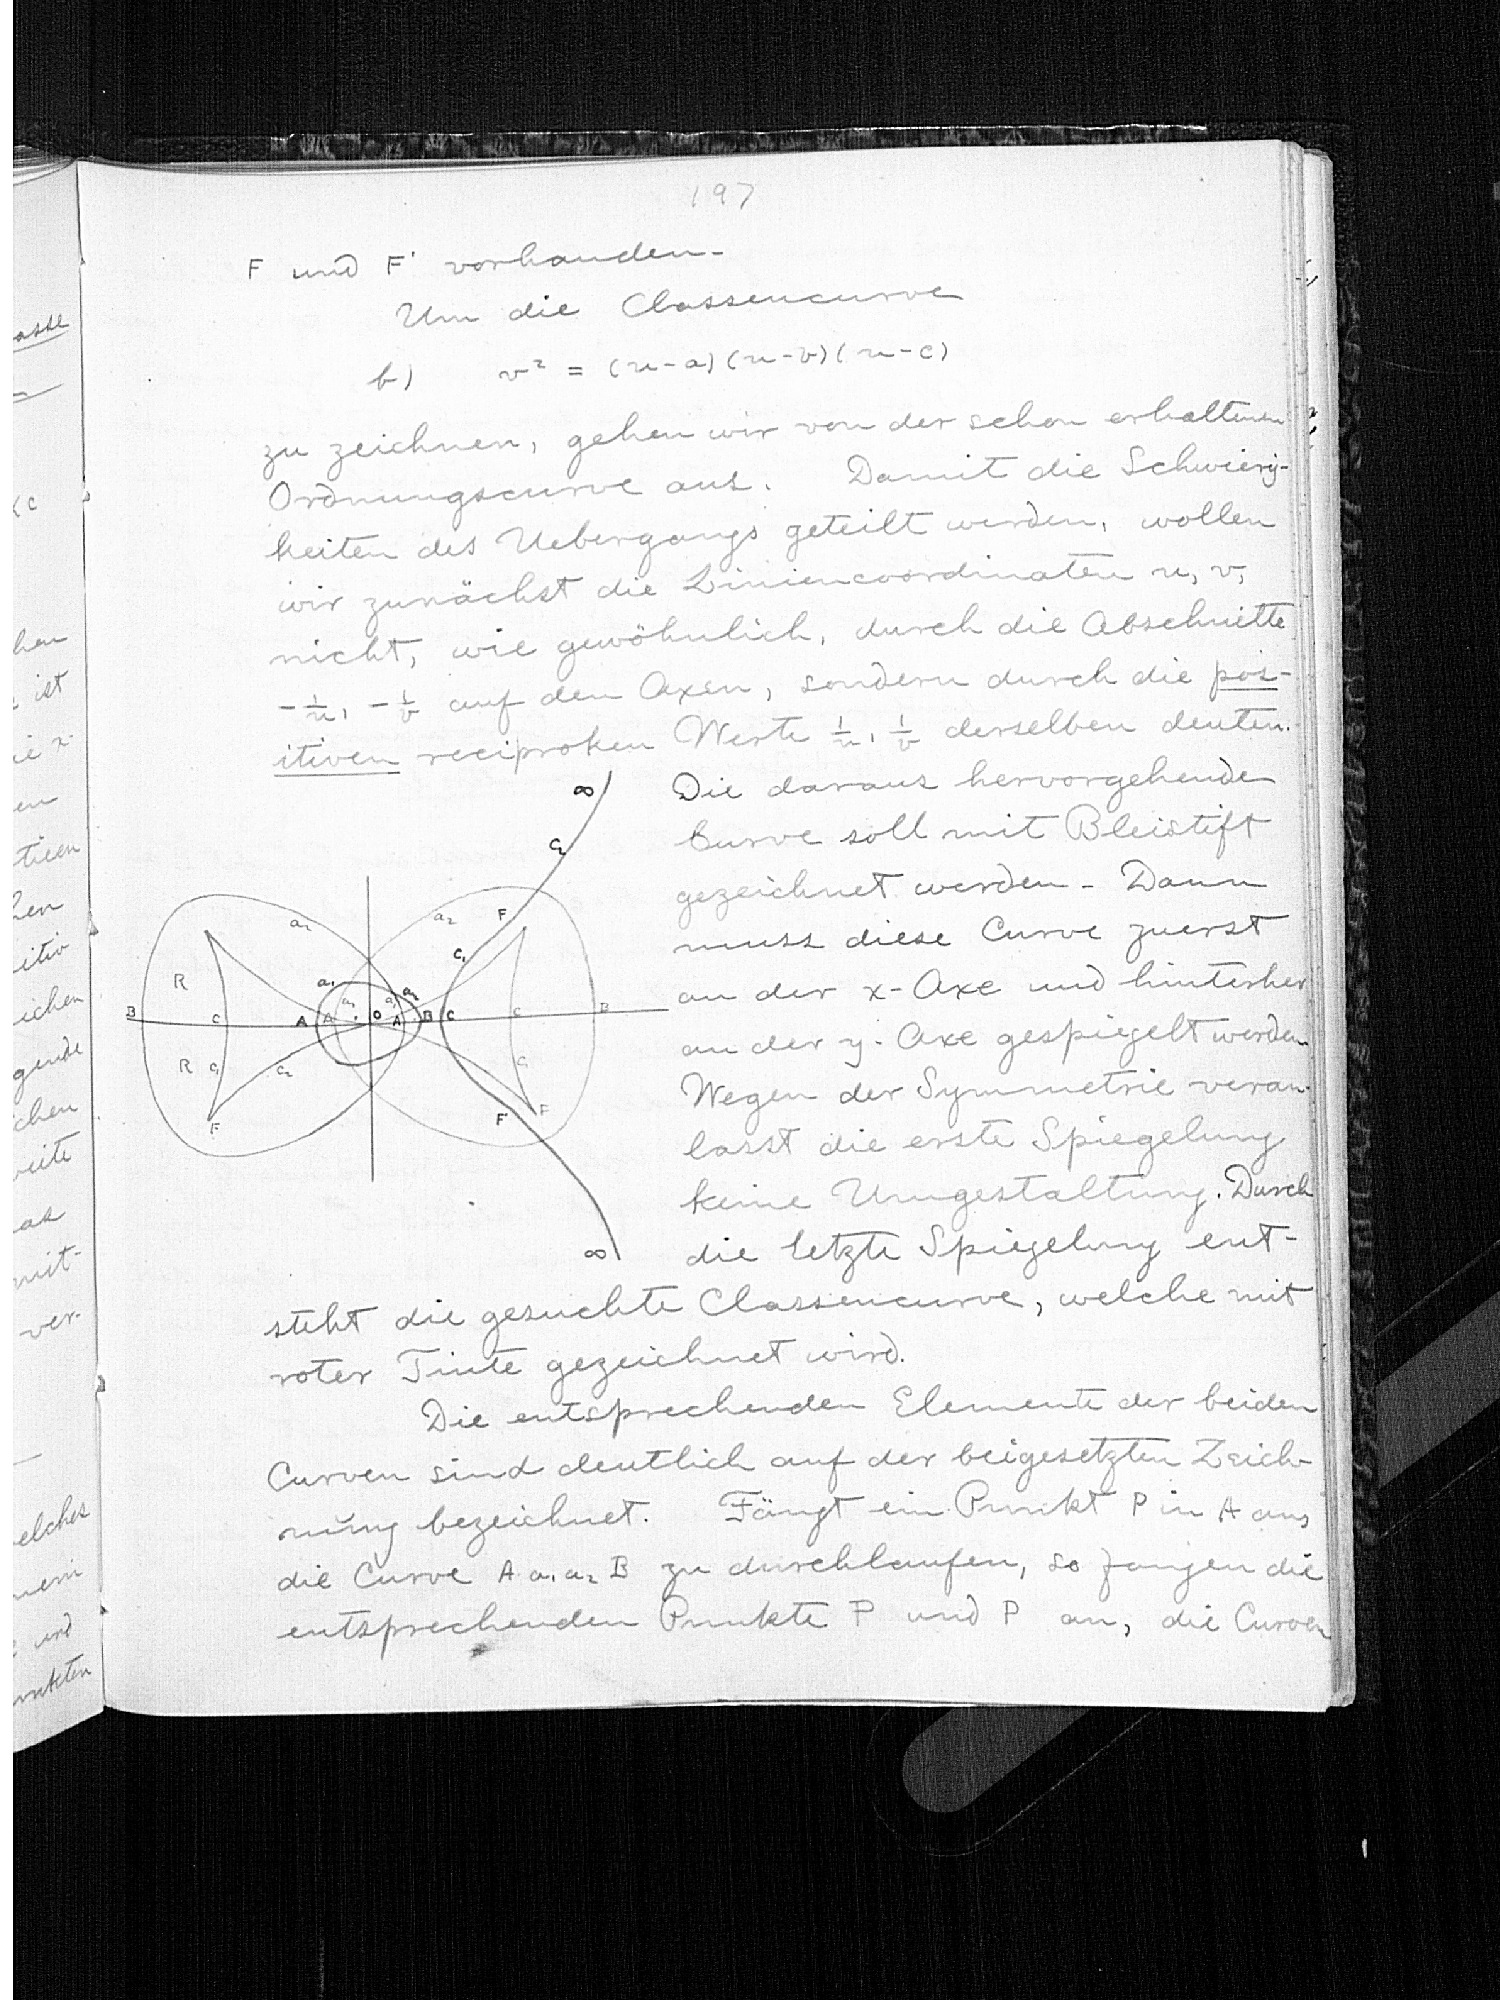 197
F und F' vorhanden.
Um die Classencurve
b) v² = (u-a)(u-b)(u-c)
zu zeichnen, gehen wir von der schon erhaltenen
Ordnungscurve aus. Damit die Schwierig-
keiten des Uebergangs geteilt werden, wollen
wir zunächst die Liniencoordinaten u, v,
nicht, wie gewöhnlich, durch die Abschnitte
-1/u, -1/v auf den Axen, sondern durch die pos-
itiven reciproken Werte 1/u, 1/v derselben deuten.
Die daraus hervorgehende
Curve soll mit Bleistift
gezeichnet werden. Dann
muss diese Curve zuerst
an der x-Axe und hinterher
an der y-Axe gespiegelt werden
Wegen der Symmetrie veran-
lasst die erste Spiegelung
keine Umgestaltung. Durch
die letzte Spiegelung ent-
steht die gesuchte Classencurve, welche mit
roter Tinte gezeichnet wird.
Die entsprechenden Elemente der beiden
Curven sind deutlich auf der beigesetzten Zeich-
nung bezeichnet. Fängt ein Punkt P in A an,
die Curve A a₁ a₂ B zu durchlaufen, so fangen die
entsprechenden Punkte P und P an, die Curven
∞
C₂
a₂
a₂
F
C₁
R
a₁
a₁
a₁
a₂
B
C
A
A
O
A
B
C
C
B
R
C₁
C₂
C₁
F
F'
F
∞